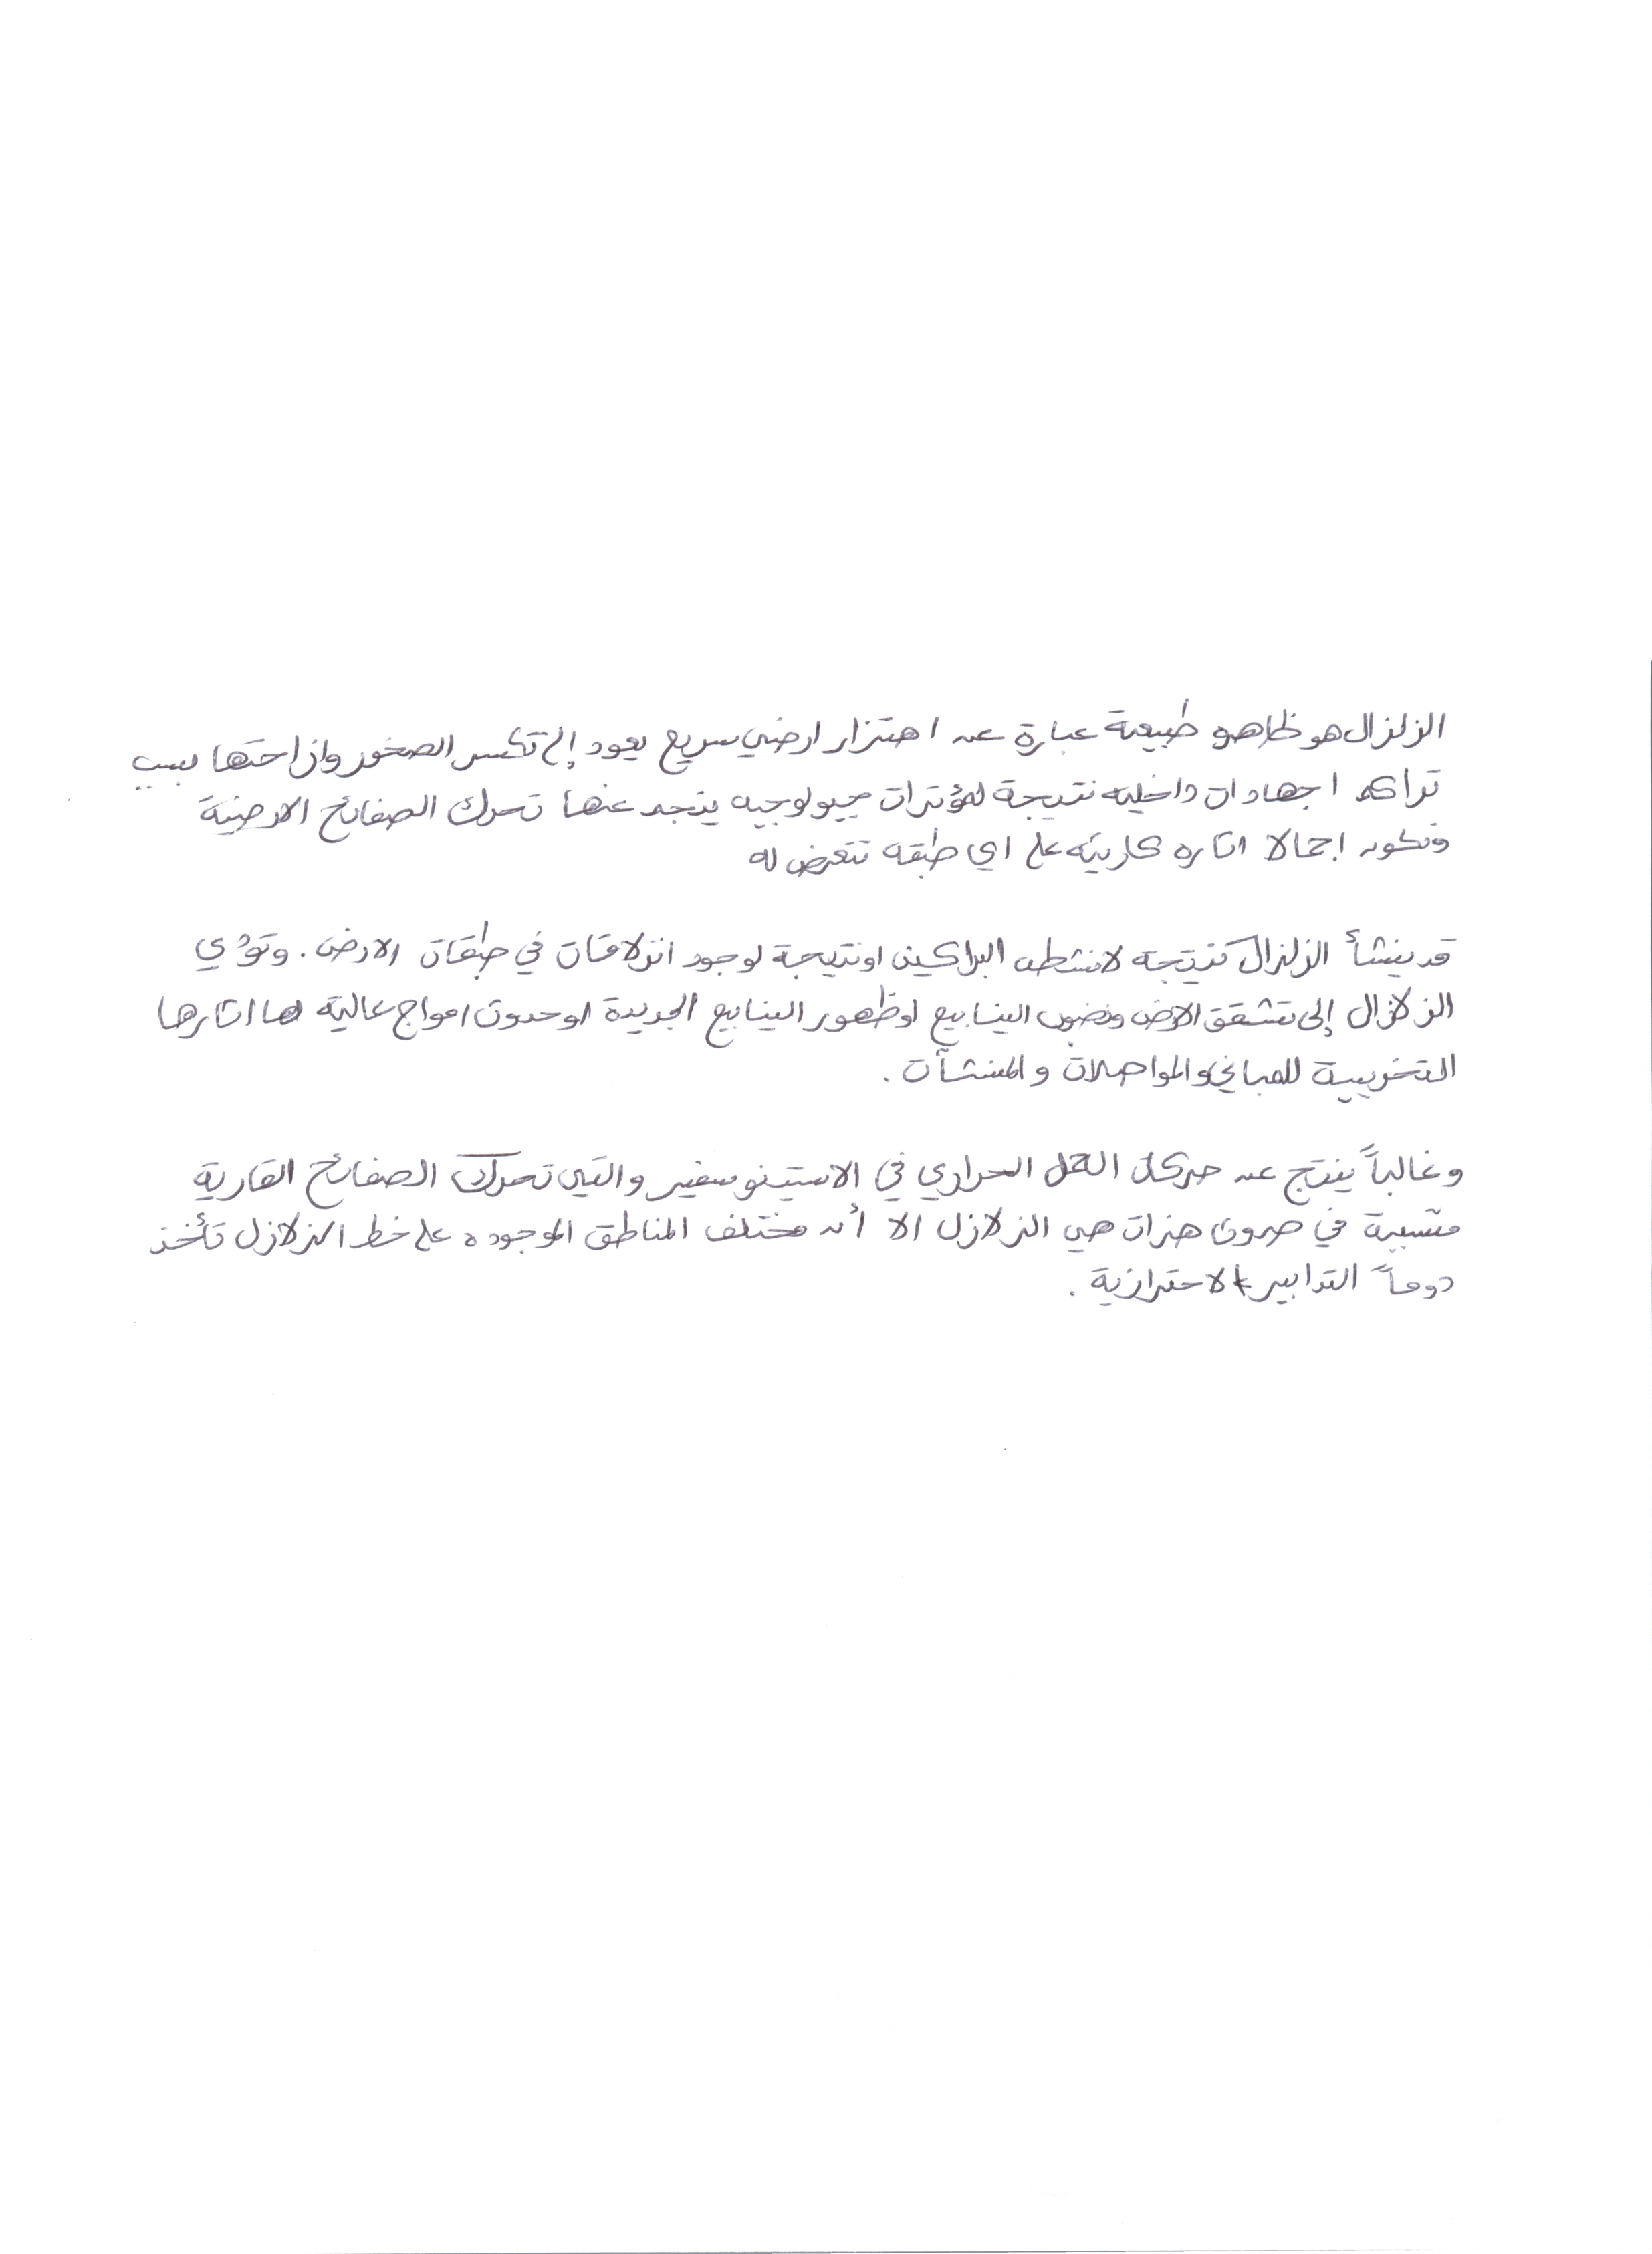 الزلزال هو ظاهره طبيعية عبارة عن اهتزاز ارضي سريع يعود إلى تكسر الصخور وازاحتها بسبب
تراكم اجهادات داخليه نتيجة لمؤثرات جيولوجيه ينجم عنها تحرك الصفائح الارضية
وتكون اجمالا اثاره كارثيه على اي طبقه تتعرض له
قد ينشأ الزلزال كنتيجه لانشطه البراكين او نتيجة لوجود انزلاقات في طبقات الارض. وتؤدي
الزلازل إلى تشقق الارض ونضوب الينابيع او ظهور الينابيع الجديدة او حدوث امواج عالية لها اثارها
التخريبية للمباني والمواصلات والمنشآت.
وغالباً ينتج عن حركات الحمل الحراري في الاستينوسفير والتي تحرك الصفائح القارية
متسببة في حدوث هزات هي الزلازل الا أن مختلف المناطق الموجوده على خط الزلازل تأخذ
دوماً التدابير الاحترازية.